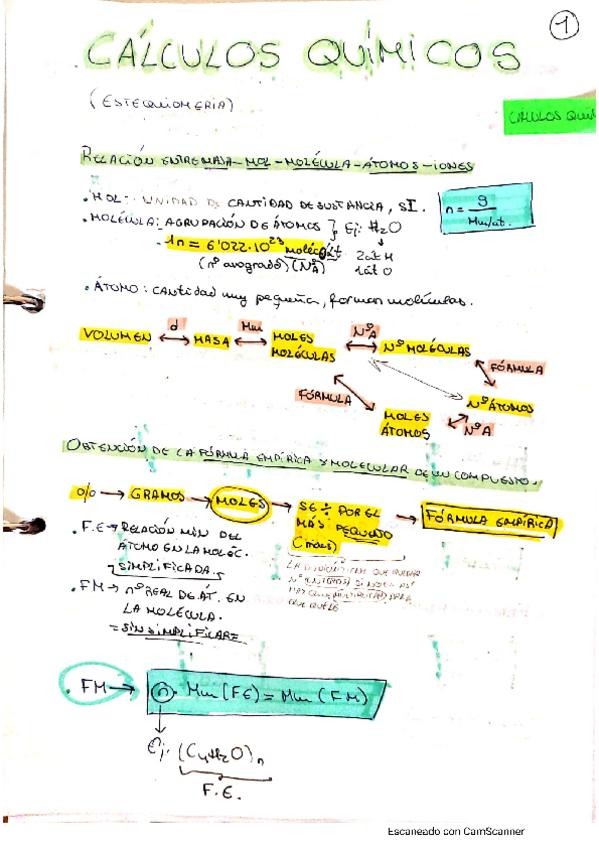 1
CÁLCULOS QUÍMICOS
(ESTEQUIOMERÍA)
CÁLCULOS QUÍM
RELACIÓN ENTRE MASA-MOL-MOLÉCULA-ÁTOMOS-IONES
• MOL: UNIDAD DE CANTIDAD DE SUSTANCIA, SI.
n = g / Mm/at.
• MOLÉCULA: AGRUPACIÓN DE ÁTOMOS } Ej: H₂O
- 1n = 6'022·10²³ molec/át
2 át H
(nº avogrado) (NºA)
1 át O
• ÁTOMO: cantidad muy pequeña, forman moléculas.
VOLUMEN ↔ d MASA ↔ Mm MOLES MOLÉCULAS ↔ NºA Nº MOLÉCULAS
FÓRMULA
FÓRMULA
Nº ÁTOMOS
MOLES ÁTOMOS
NºA
OBTENCIÓN DE LA FÓRMULA EMPÍRICA Y MOLECULAR DE UN COMPUESTO.
o/o → GRAMOS → MOLES → SE ÷ POR EL MÁS PEQUEÑO (moles) → FÓRMULA EMPÍRICA
• F.E → RELACIÓN MIN DEL
ÁTOMO EN LA MOLÉC.
SIMPLIFICADA.
LA DIVISIÓN TIEN QUE QUEDAR
Nº (ENTEROS) SI NO ES ASÍ
HAY QUE MULTIPLICAR PARA
QUE QUEDE
• FM → nº REAL DE ÁT. EN
LA MOLÉCULA.
= SIN SIMPLIFICAR =
• FM → n · Mm (FE) = Mm (FM)
Ej: (C₄H₂O)n
F.E.
Escaneado con CamScanner